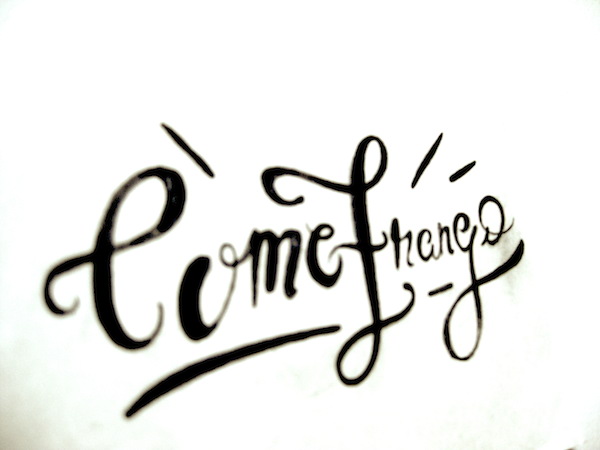 Come Frango